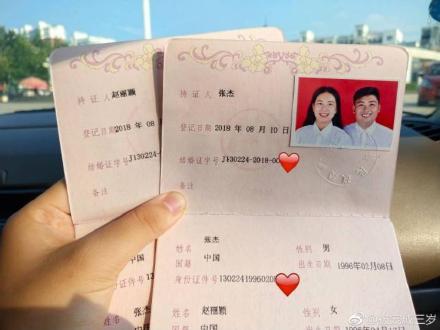 持 证 人 赵丽颖
登记日期 2018 年 08
结婚证字号 J130224
备注
持 证 人 张杰
登记日期 2018 年 08 月 10 日
结婚证字号 J130224-2018-00
备注
姓名 张杰 性别 男
国籍 中国 出生日期 1996年02月08日
身份证件号 13022419960208
姓名 赵丽颖 性别 女
国籍 中国